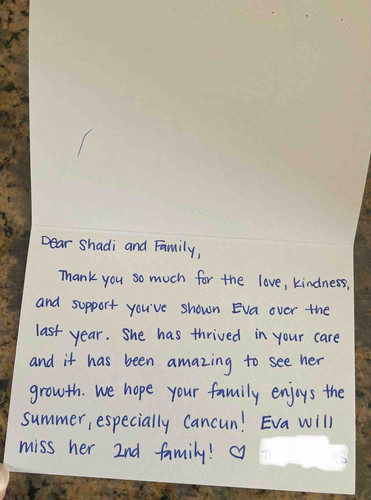 Dear Shadi and Family,
Thank you so much for the love, kindness,
and support you've shown Eva over the
last year. She has thrived in your care
and it has been amazing to see her
growth. We hope your family enjoys the
Summer, especially Cancun! Eva will
miss her 2nd family! ♡